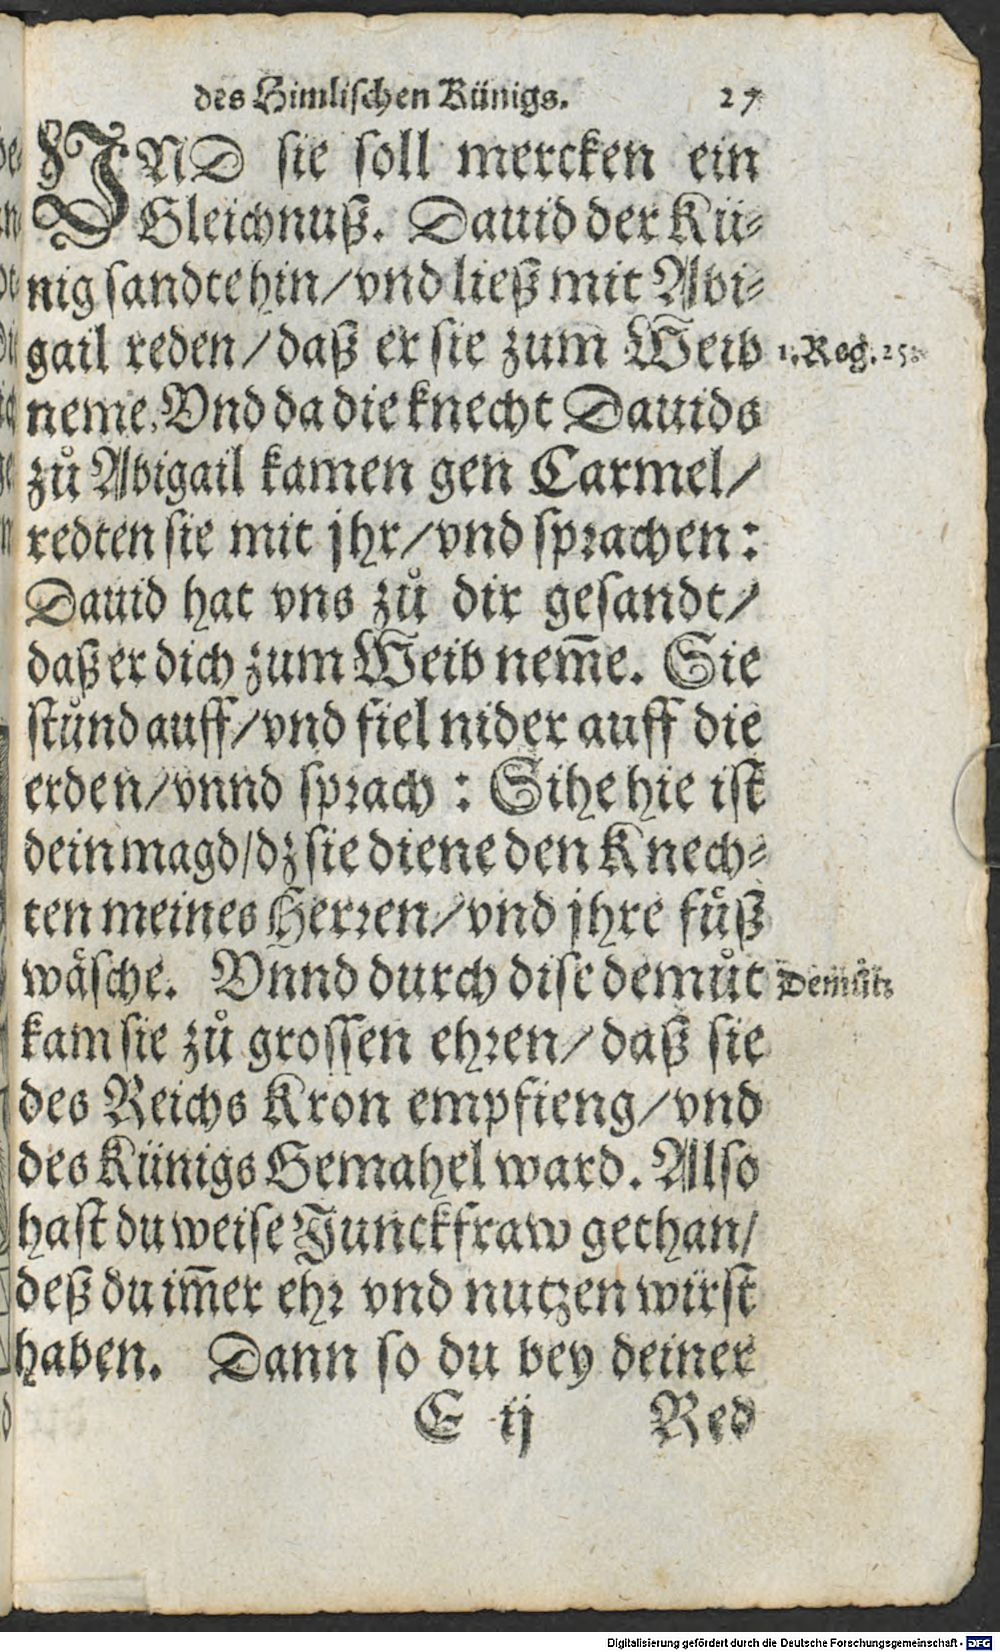 des Himlischen Künigs. 27
VND sie soll mercken ein
Gleichnuß. Dauid der Kü⸗
nig sandte hin/vnd ließ mit Abi⸗
gail reden/daß er sie zum Weib
1. Reg. 25.
neme. Vnd da die knecht Dauids
zů Abigail kamen gen Carmel/
redten sie mit jhr/vnd sprachen:
Dauid hat vns zů dir gesandt/
daß er dich zum Weib nem̄e. Sie
stůnd auff/vnd fiel nider auff die
erden/vnnd sprach: Sihe hie ist
dein magd/dz sie diene den Knech⸗
ten meines Herren/vnd jhre fůß
wäsche. Vnnd durch dise demůt
Demůt
kam sie zů grossen ehren/daß sie
des Reichs Kron empfieng/vnd
des Künigs Gemahel ward. Also
hast du weise Junckfraw gethan/
deß du im̄er ehr vnd nutzen wirst
haben. Dann so du bey deiner
E ij Red
Digitalisierung gefördert durch die Deutsche Forschungsgemeinschaft - DFG